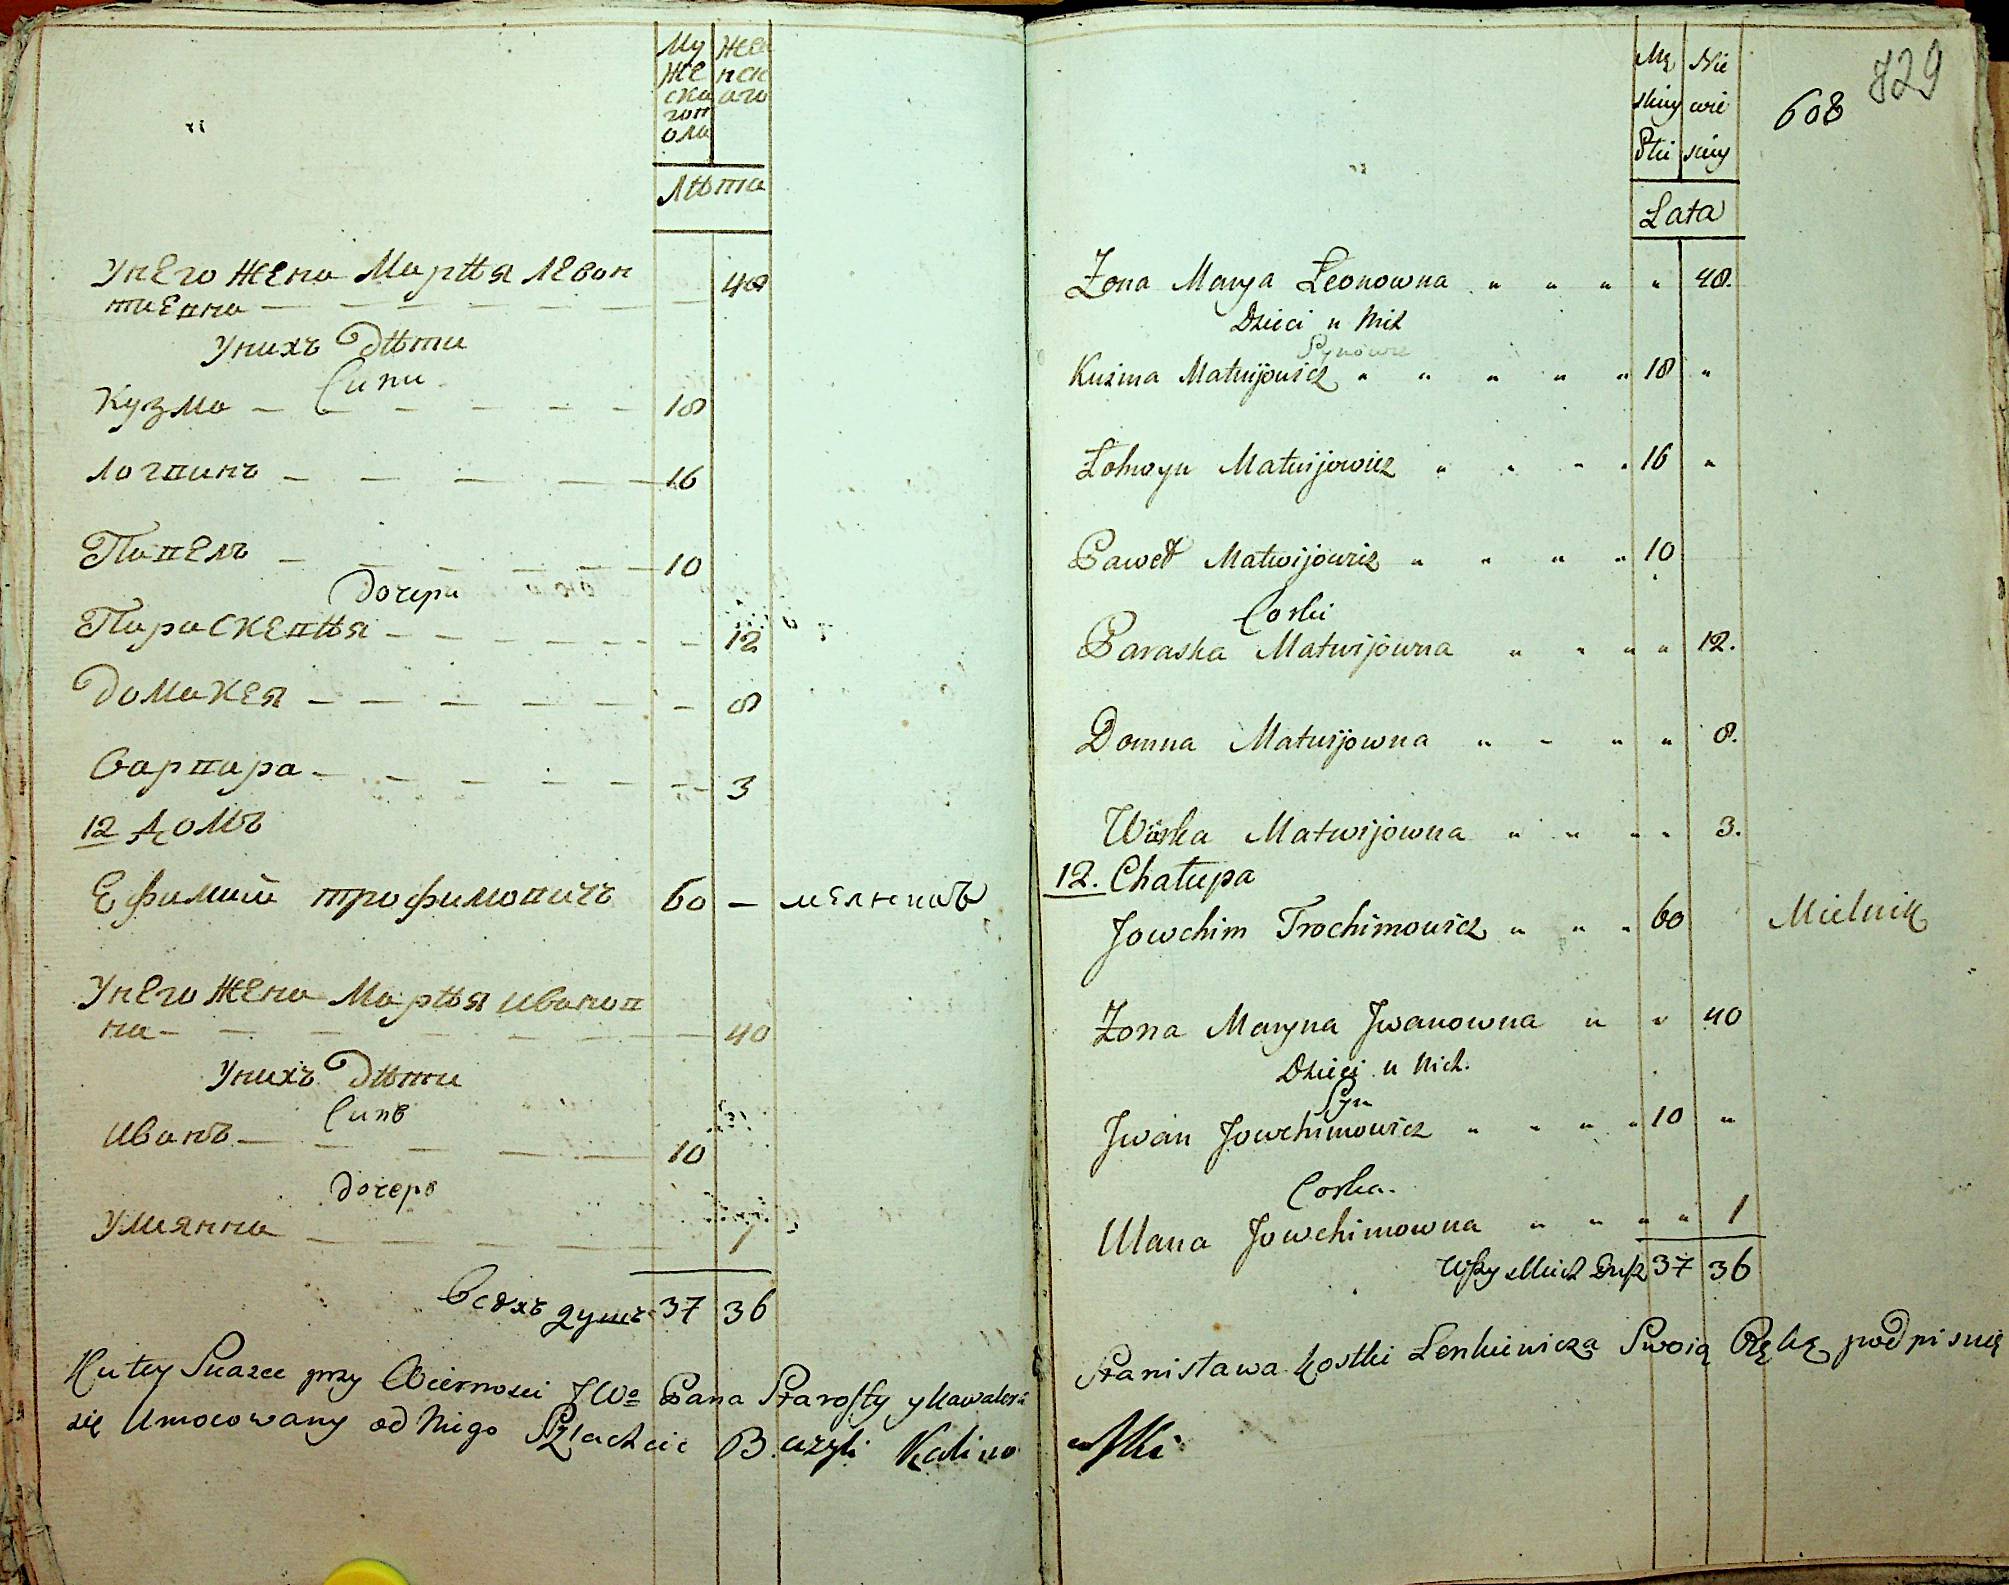 Му Жен
же нск
ска аго
го п
ола
Лѣта
У него жена Марѣя Левон
тиевна 48
У нихъ Дѣти
Сини
Кузма 18
Логвинъ 16
Павелъ 10
Дочери
Параскевѣя 12
Домакея 8
Варвара 3
12 Домъ
Ефимий Трофимовичъ 60 — мелникъ
У него жена Марѣя Иванов
на 40
У нихъ Дѣти
Синъ
Иванъ 10
Дочеръ
Улиянна 1
Всѣхъ душъ 37 36
Ku tey Skazce przy Wiernosci JWo Pana Starosty y Kawalera
się Umocowany od Niego Szlachcic Bazyli Kalino
829
608
Mę Nie
skiey wie
Płci skiey
Lata
Zona Marya Leonowna 48.
Dzieci u Nich
Synowie
Kuzma Matwijowicz 18
Lohwyn Matwijowicz 16
Paweł Matwijowicz 10
Corki
Paraska Matwijowna 12.
Domna Matwijowna 8.
Warka Matwijowna 3.
12. Chałupa
Jowchim Trochimowicz 60 Mielnik
Zona Maryna Jwanowna 40
Dzieci u Nich.
Syn
Jwan Jowchimowicz 10
Corka.
Ulana Jowchimowna 1
Wszystkich Dusz 37 36
Stanisława Kostki Lenkiewicza Swoią Ręką podpisuię
wski